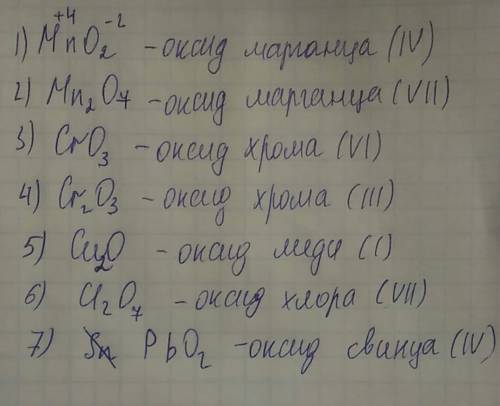 1) Mn⁺⁴O₂⁻² - оксид марганца (IV)
2) Mn₂O₇ - оксид марганца (VII)
3) CrO₃ - оксид хрома (VI)
4) Cr₂O₃ - оксид хрома (III)
5) Cu₂O - оксид меди (I)
6) Cl₂O₇ - оксид хлора (VII)
7) PbO₂ - оксид свинца (IV)